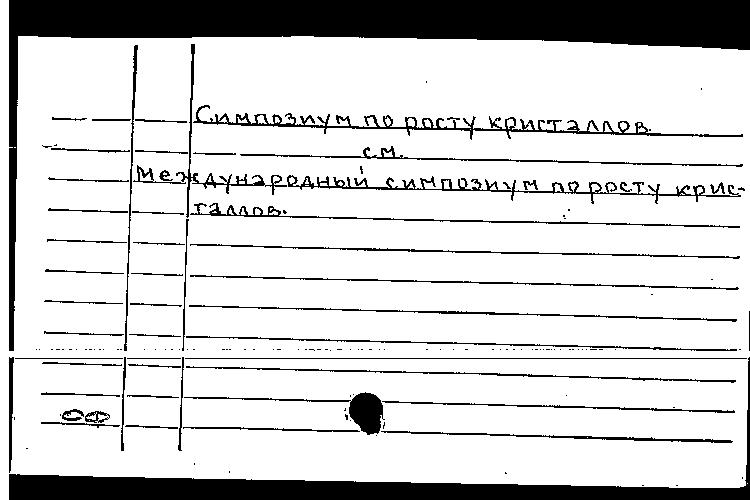 Симпозиум по росту кристаллов.
см.
Международный симпозиум по росту крис-
таллов.